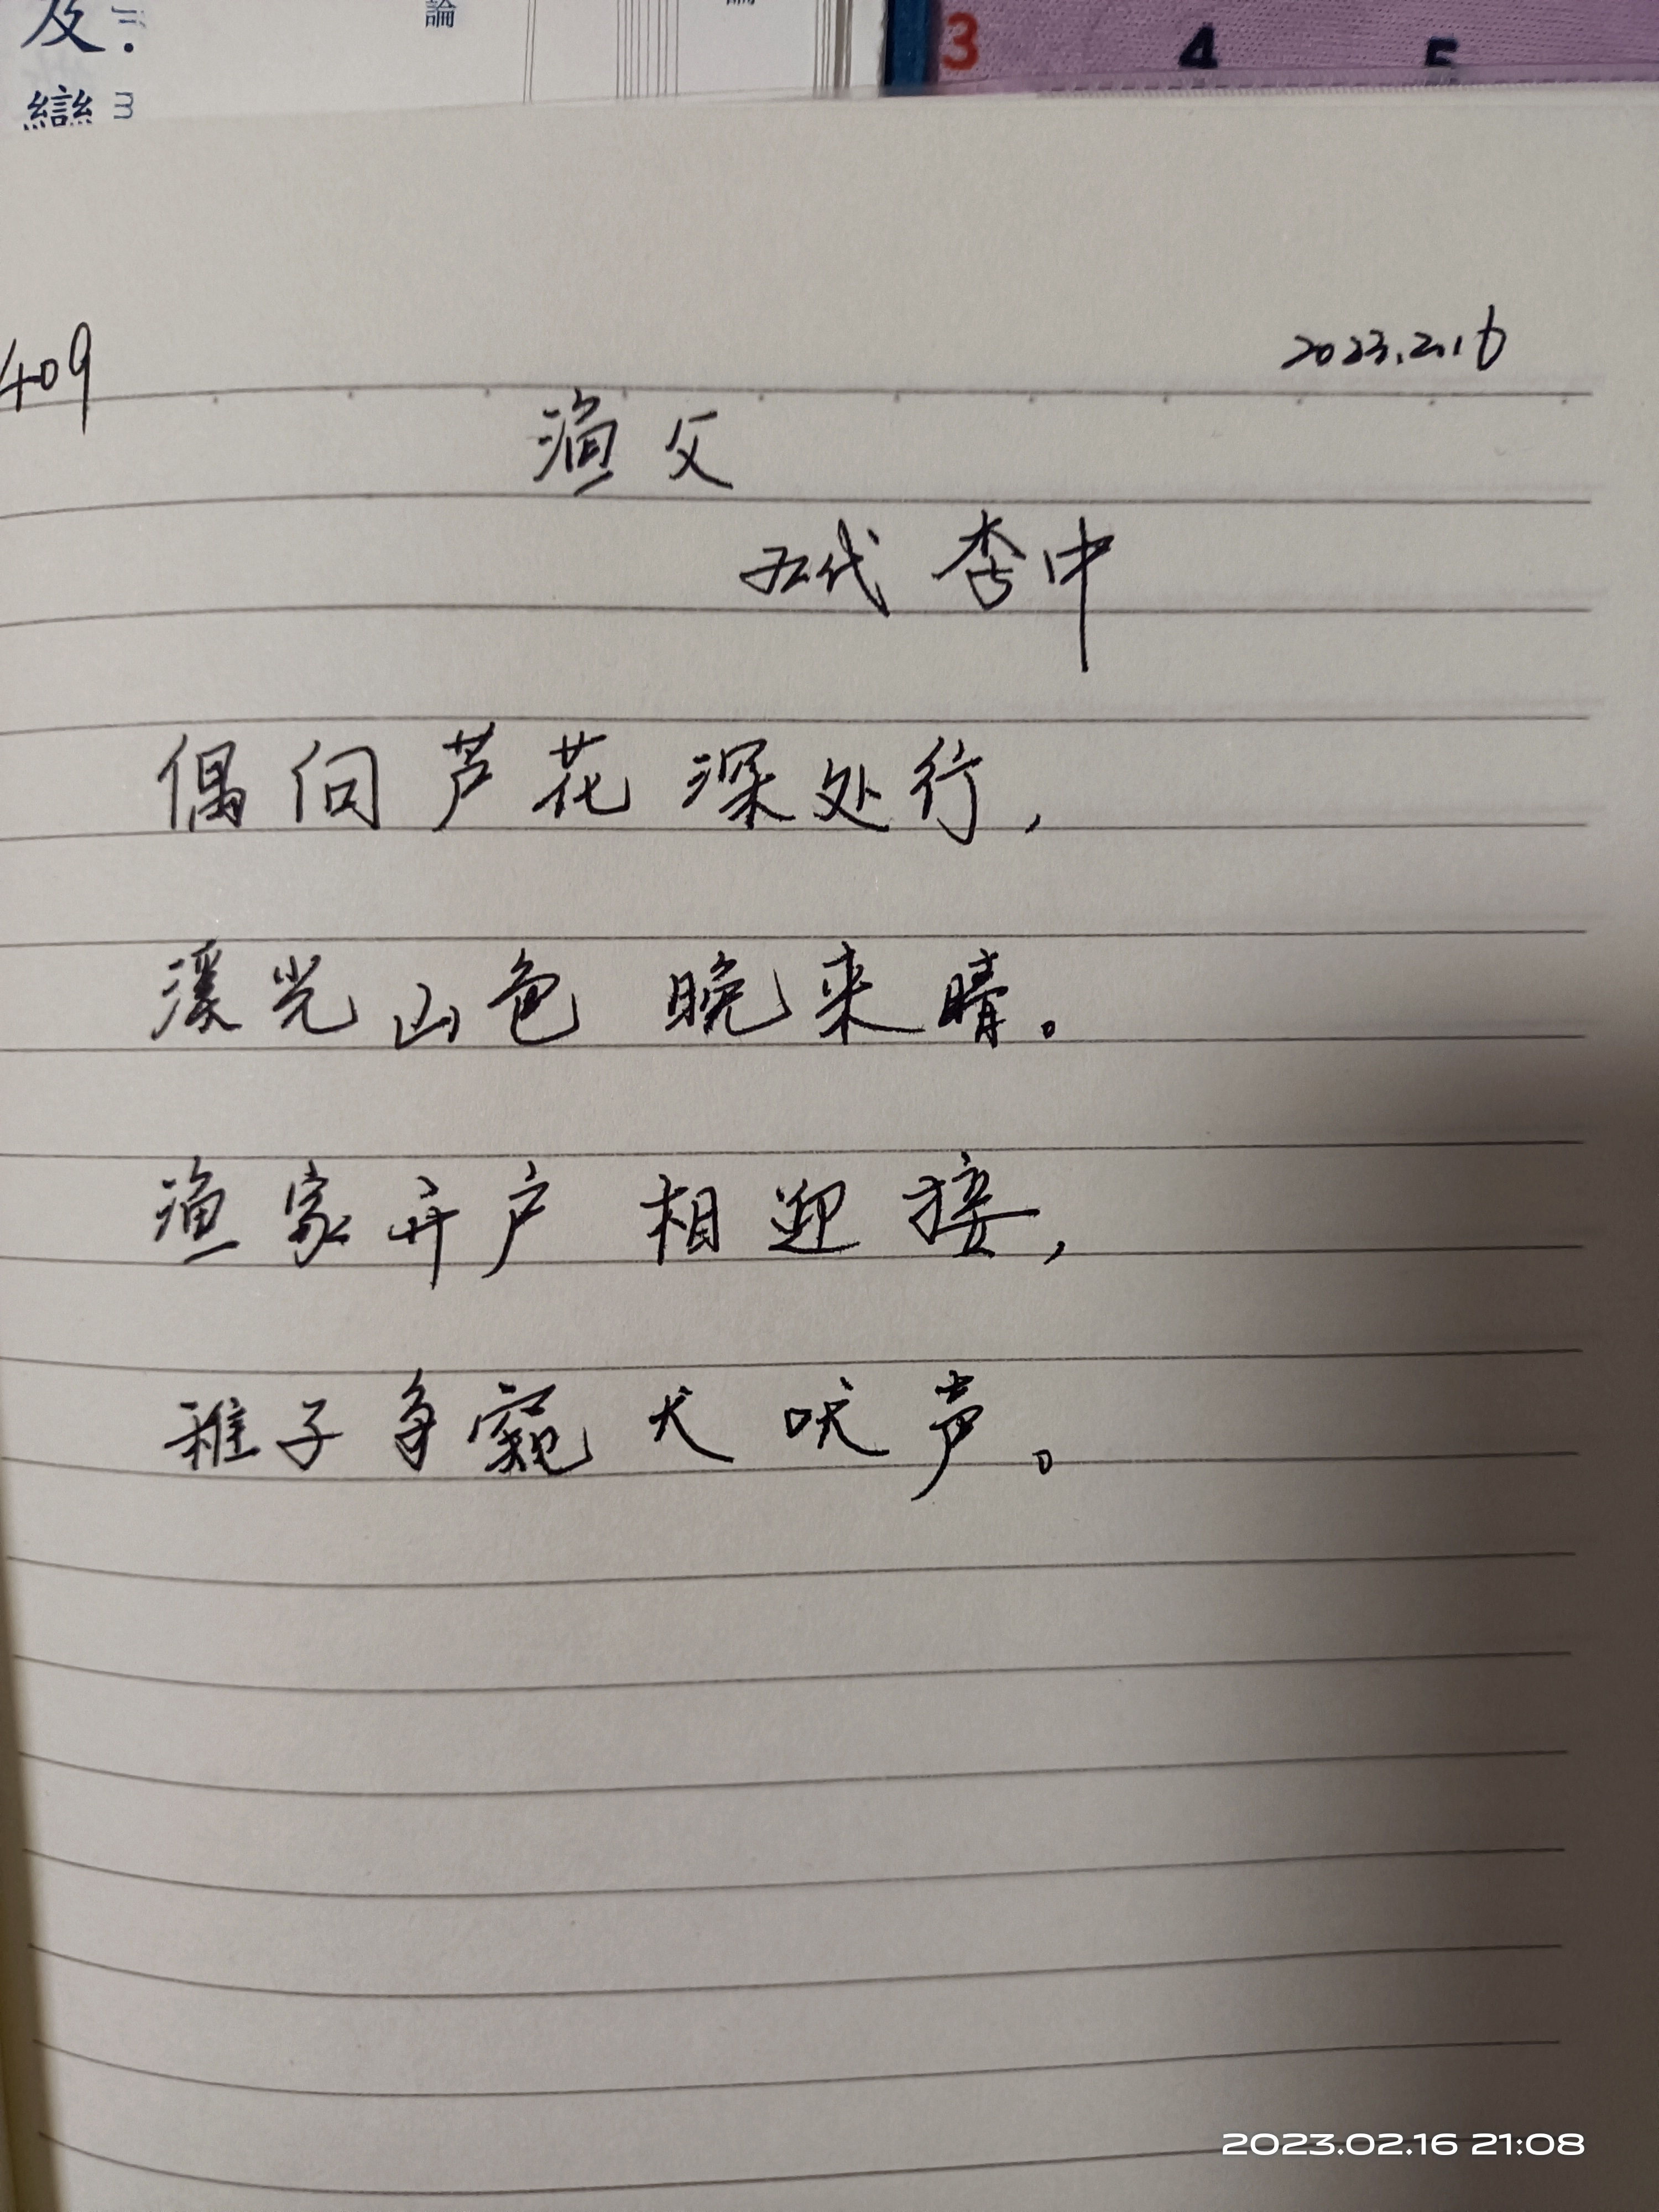 及：
論
3 4 5
戀 3
409
2023.2.16
渔父
五代 李中
偶向芦花深处行，
溪光山色晚来晴。
渔家开户相迎接，
稚子争窥犬吠声。
2023.02.16 21:08